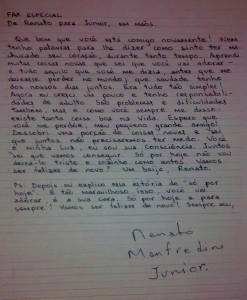 FAX ESPECIAL
De Renato para Junior, em mãos
Que bem que você está comigo novamente! Nem
tenho palavras para lhe dizer como sinto ter ma-
chucado seu coração, durante tanto tempo. Aprendi
muitas coisas novas que sei que você vai adorar -
e tudo aquilo que você me dizia, antes que me
deixasse perder no mundo; que saudade tenho
dos nossos dias juntos. Era tudo tão simples!
Agora eu cresci um pouco e tenho responsabili-
dades de adulto. São problemas e dificuldades
também, mas é como você sempre me disse:
existe tanta coisa boa na vida. Espero que
você me perdoe, meu pequeno grande amigo.
Descobri uma porção de coisas novas e sei
que juntos não precisaremos ter medo. Você
é minha luz, eu sou sua consciência. Juntos
sei que vamos conseguir. Só por hoje não vou
deixá-lo triste e sozinho como antes. Vamos
ser felizes de novo! Um beijo, Renato.
Ps. Depois eu explico essa estória de "só por
hoje". É tão maravilhoso isso, você vai
adorar, é a sua cara. Só por hoje e para
sempre! Vamos ser felizes de novo! Sempre seu,
Renato
Manfredini
Junior.